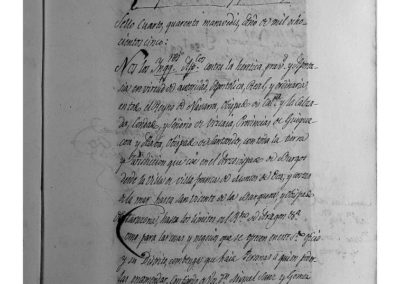 Sello Quarto, quarenta maravedis, año de mil ocho
cientos cinco:
Nos los Inqq.res App.cos contra la heretica prav.d y Aposta
sia en virtud de autoridad Apostolica, Real, y ordinaria,
en todo el Reyno de Navarra, Obispado de Cal.ra y la Calza
da, Condado y Señorio de Vizcaia, Provincias de Guipuz
coa y Alaba, Obispado de Santander, con toda la tierra
y Jurisdicion que cae en el Arzobispado de Burgos
desde la Villa de villa franca de Montes de Oca, y vertien
te la mar hasta San Vicente de la Barquera, y Obispado
de Tarazona, hasta los limites del R.no de Aragon &.a
Como para las cosas y negocios que se ofrecen en este S.to oficio
y su Distrito, combenga que haia Personas a quien poder
las encomendar, Confiando de Vos D.n Miguel Saez y Gomez